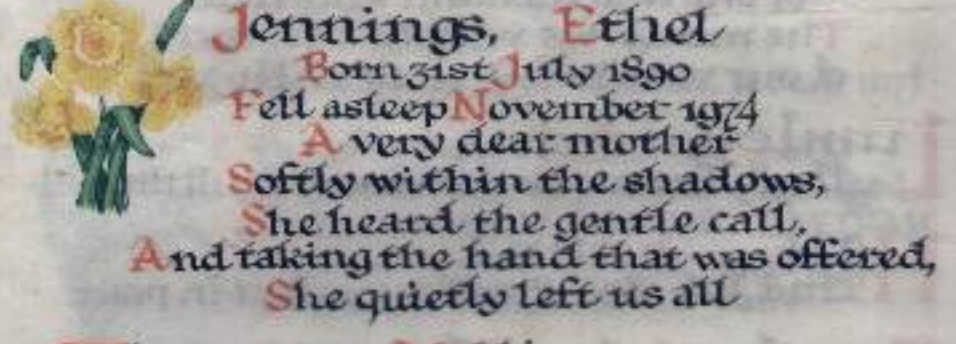 Jennings, Ethel
Born 31st July 1890
Fell asleep November 1974
A very dear mother
Softly within the shadows,
She heard the gentle call,
And taking the hand that was offered,
She quietly left us all